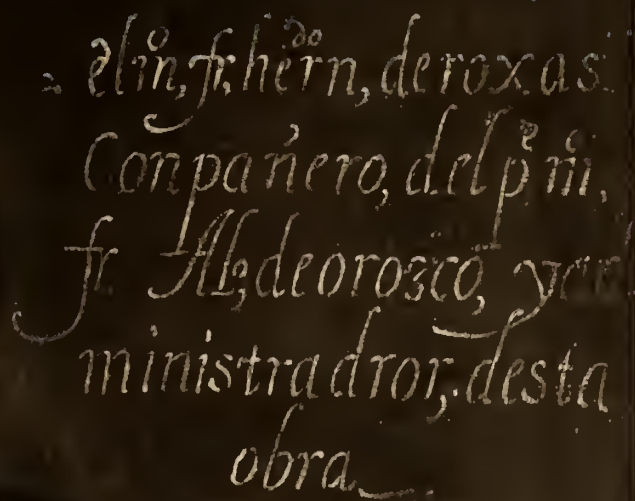 el iñ, fr, herndo, de roxas
Conpañero, del pe, mo,
fr Al, de orozco,
ministradror, desta
obra